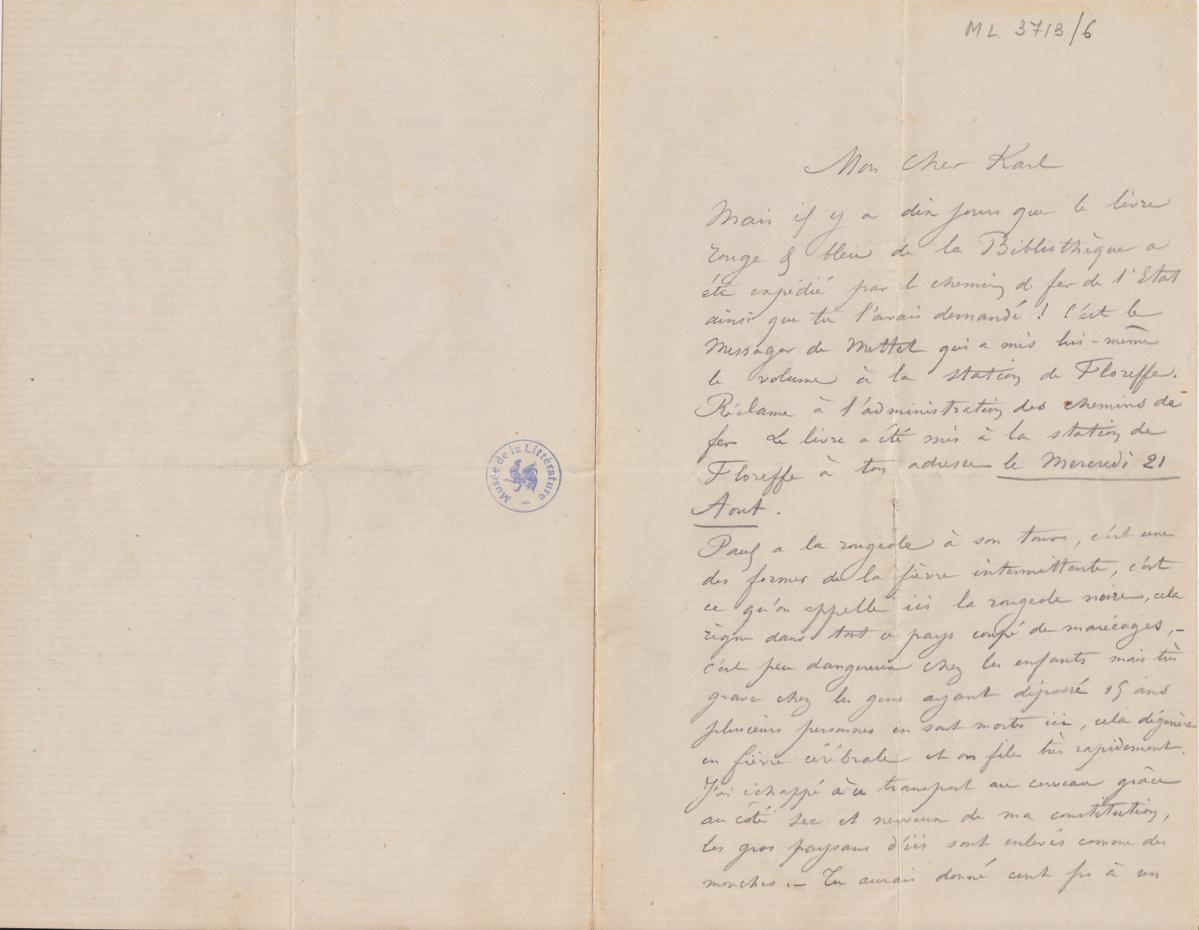 ML 3713/6
Mon Cher Karl
Mais il y a dix jours que le livre
rouge & bleu de la Bibliothèque a
été expédié par le chemin de fer de l'Etat
ainsi que tu l'avais demandé ! C'est le
Messager de Mettet qui a mis lui-même
le volume à la station de Floreffe.
Réclame à l'administration des chemins de
fer Le livre a été mis à la station de
Floreffe à ton adresse le Mercredi 21
Aout.
Paul a la rougeole à son tour, c'est une
des formes de la fièvre intermittente, c'est
ce qu'on appelle ici la rougeole noire, cela
règne dans tout ce pays coupé de marécages, –
c'est peu dangereux chez les enfants mais très
grave chez les gens ayant dépassé 15 ans
plusieurs personnes en sont mortes ici, cela dégénère
en fièvre cérébrale et on file très rapidement.
J'ai échappé à ce transport au cerveau grâce
au côté sec et nerveux de ma constitution,
les gros paysans d'ici sont enlevés comme des
mouches. – Tu aurais donné cent frs à un
Musée de la Littérature